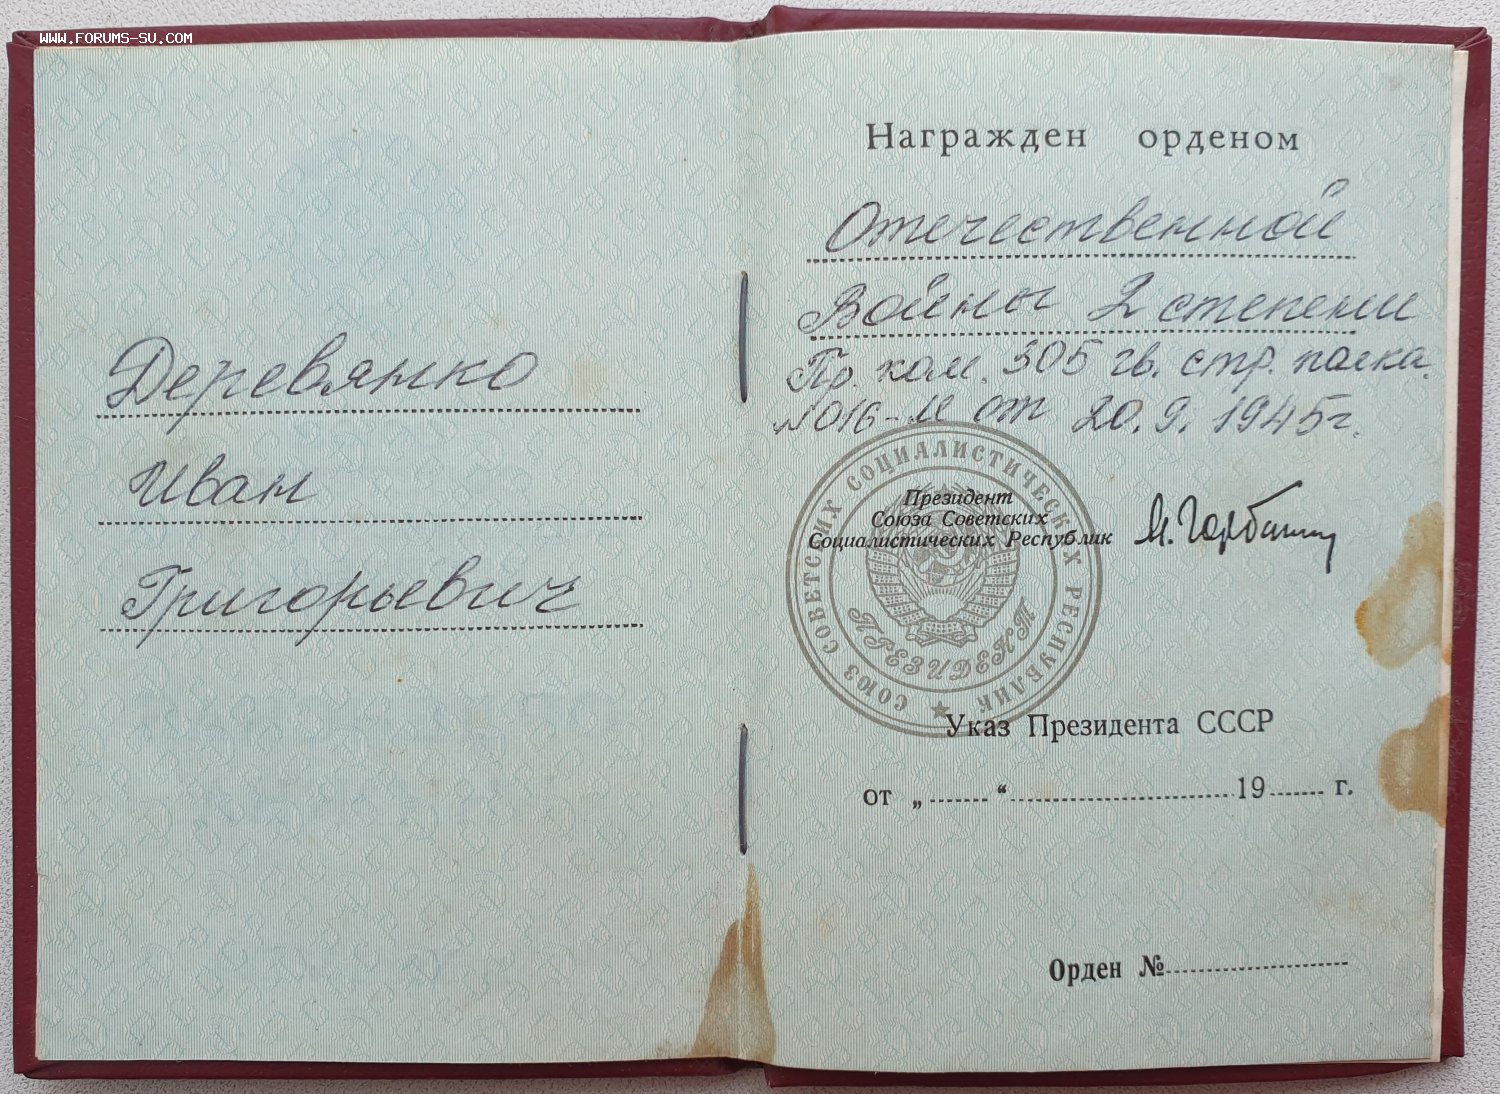 WWW.FORUMS-SU.COM
Деревянко
Иван
Григорьевич
Награжден орденом
Отечественной
Войны 2 степени
Пр. ком. 305 гв. стр. полка
№ 016-И от 20.9.1945г.
Президент
Союза Советских
Социалистических Республик
М. Горбачев
СОЮЗ СОВЕТСКИХ СОЦИАЛИСТИЧЕСКИХ РЕСПУБЛИК
ПРЕЗИДЕНТ
Указ Президента СССР
от „ “ 19 г.
Орден №